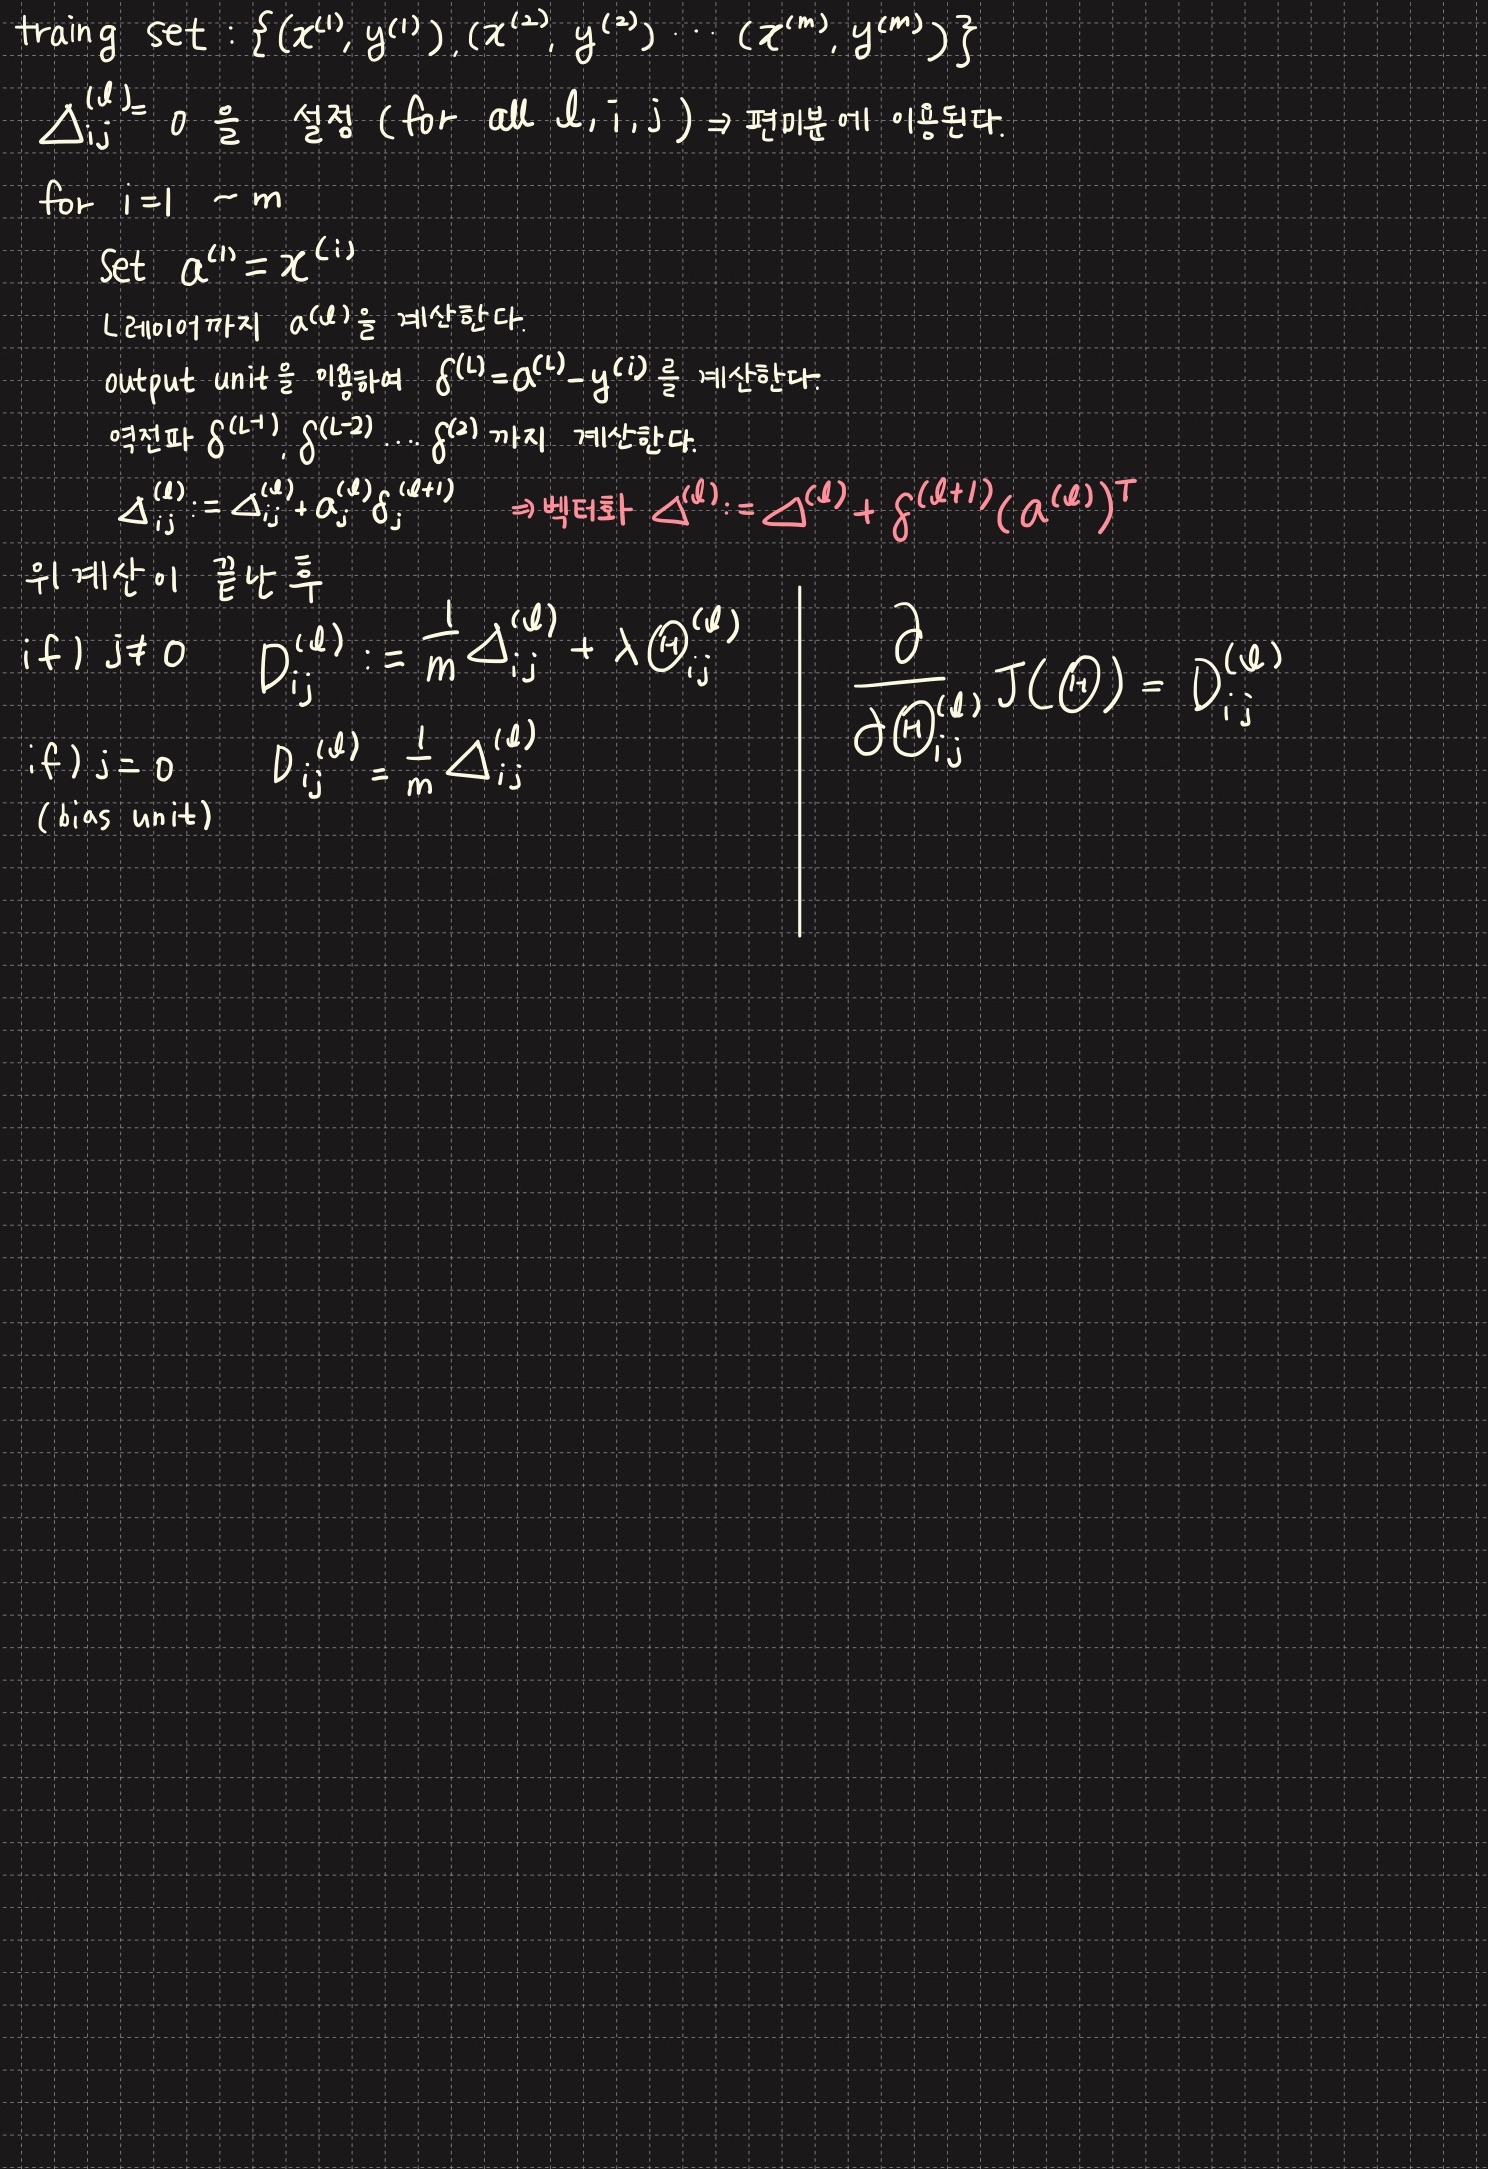 traing set : {(x⁽¹⁾, y⁽¹⁾), (x⁽²⁾, y⁽²⁾) ··· (x⁽ᵐ⁾, y⁽ᵐ⁾)}
Δᵢⱼ^(l) = 0 을 설정 (for all l, i, j) ⇒ 편미분에 이용된다.
for i=1 ~ m
Set a^(1) = x^(i)
L레이어까지 a^(l)을 계산한다.
output unit을 이용하여 δ^(L) = a^(L) - y^(i) 를 계산한다.
역전파 δ^(L-1), δ^(L-2) ... δ^(2) 까지 계산한다.
Δᵢⱼ^(l) := Δᵢⱼ^(l) + aⱼ^(l) δⱼ^(l+1) ⇒ 벡터화 Δ^(l) := Δ^(l) + δ^(l+1) (a^(l))^T
위 계산이 끝난 후
if) j≠0 Dᵢⱼ^(l) := 1/m Δᵢⱼ^(l) + λΘᵢⱼ^(l)
if) j=0 Dᵢⱼ^(l) = 1/m Δᵢⱼ^(l)
(bias unit)
∂/∂Θᵢⱼ^(l) J(Θ) = Dᵢⱼ^(l)